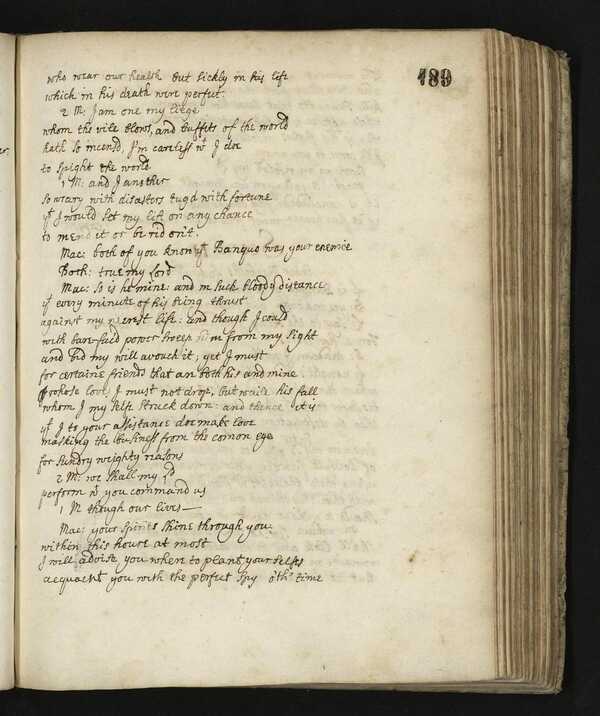 189
who wear our health but sickly in his life
which in his death were perfect.
2 M: I am one my liege
whom the vile blows, and buffits of the world
hath so incensd, I'm careless wt I doe
to spight the world
1 M: and I another
so weary with disasters tugd with fortune
yt I would set my life on any chance
to mend it or be rid on't.
Mac: both of you know yt Banquo was your enemie
Both: true my Lord
Mac: So is he mine: and in such bloody distance
yt every minute of his being thrust
against my neerest life: and though I could
with bare-facd power sweep him from my sight
and bid my will avouch it; yet I must
for certaine friends that are both his and mine
whose loves I must not drop, but waile his fall
whom I my self struck down: and thence it is
yt I to your assistance doe make love
masking the business from the comon eye
for sundry weighty reasons
2 M: we shall my Ld
perform wt you command us
1 M though our lives—
Mac: your spirits shine through you
within this houre at most
I will advise you where to plant your selfs
acquaent you with the perfect spy o'th' time